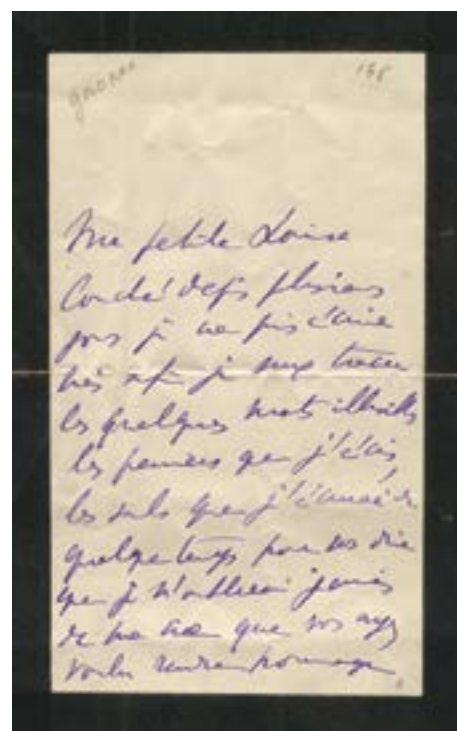 168
Ma petite Louise
Couché depuis plusieurs
jours je ne puis écrire
mais enfin je veux tracer
les quelques mots illisibles
les premiers que j'écris
les seuls que j'écrirai de
quelque temps pour vous dire
que je n'oublierai jamais
de ma vie que vous ayez
voulu rendre hommage